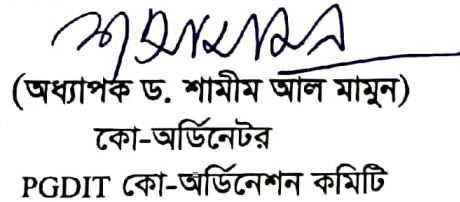 (অধ্যাপক ড. শামীম আল মামুন)
কো-অর্ডিনেটর
PGDIT কো-অর্ডিনেশন কমিটি